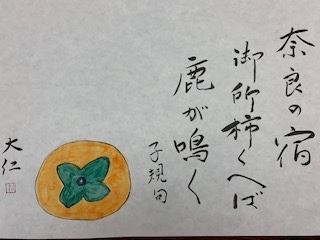 奈良の宿
御所柿くへば
鹿が鳴く
子規句
大仁